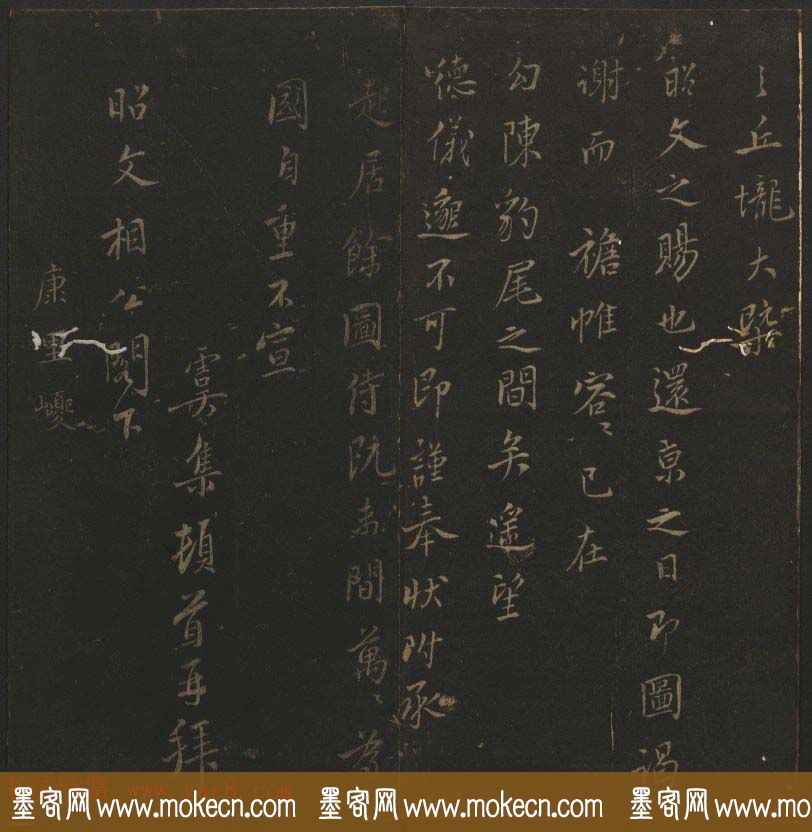 之丘壠大槩
昭文之賜也還京之日即圖謁
謝而襜帷容〻已在
勾陳豹尾之間矣遙望
德儀邈不可即謹奉狀附承
起居餘圖侍間萬〻為
國自重不宣
虞集頓首再拜
昭文相公閣下
康里巎
墨客网 www.mokecn.com 墨客网 www.mokecn.com 墨客网 www.mo